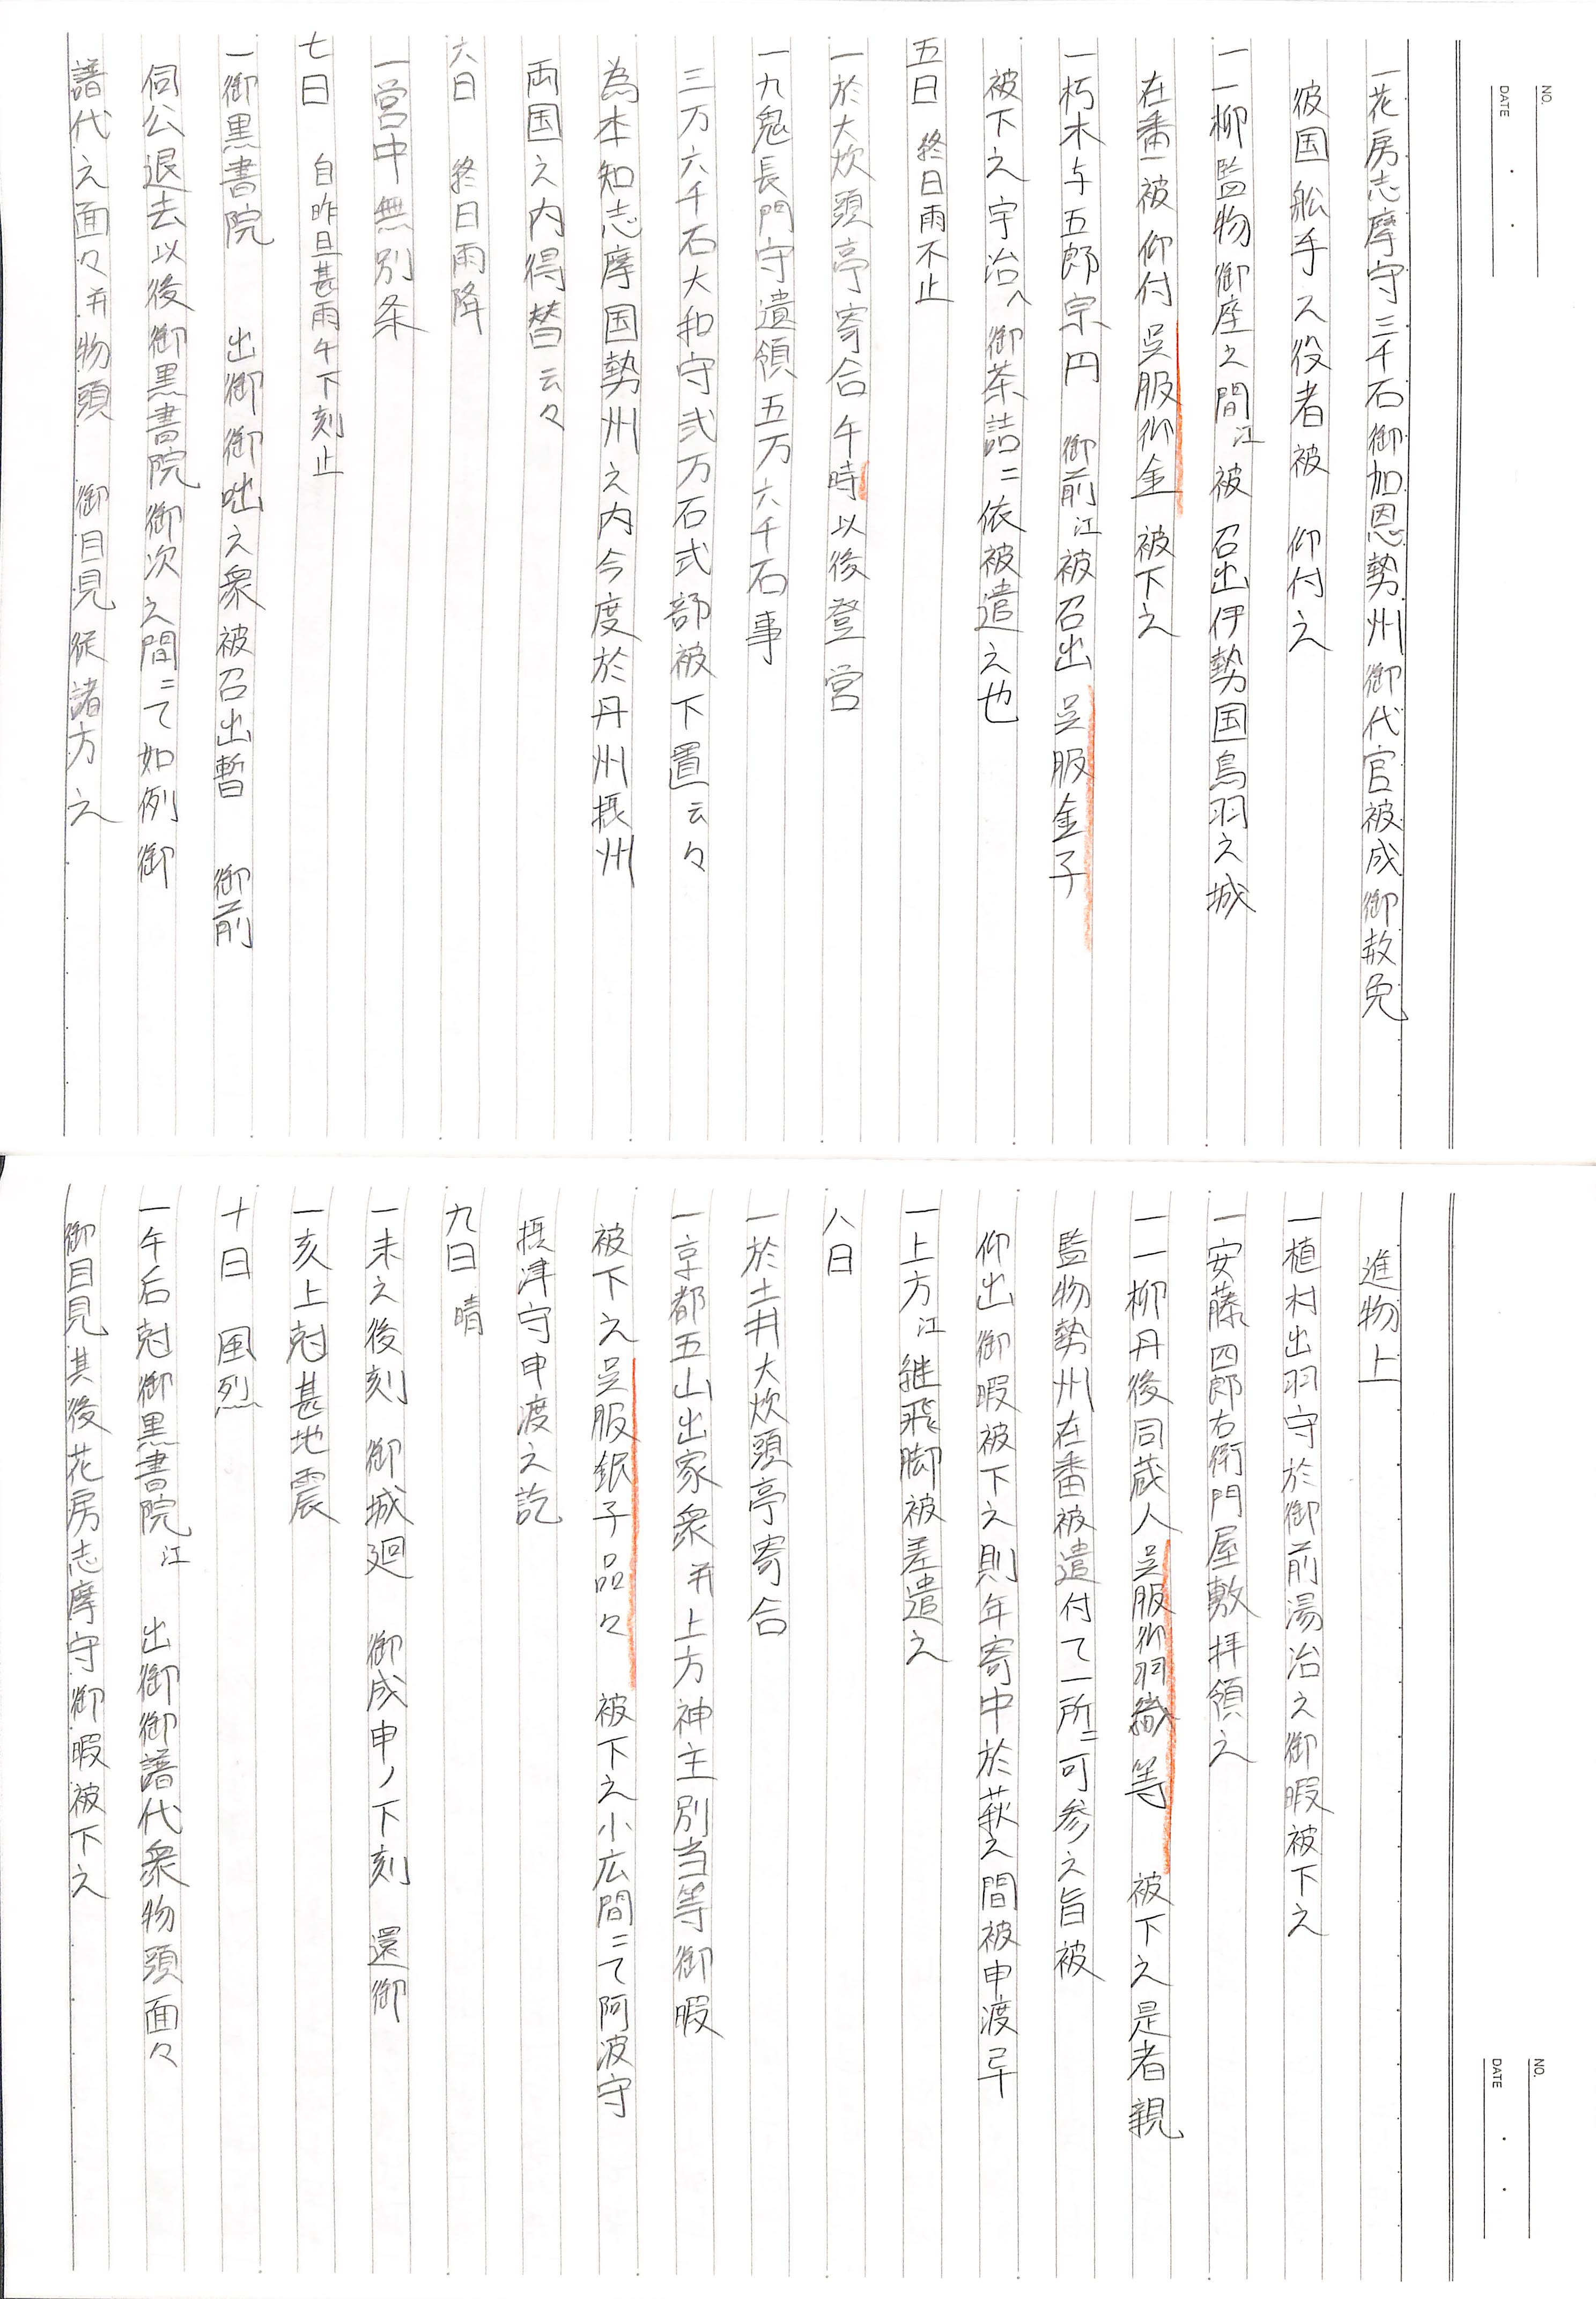 NO.
DATE
一花房志摩守三千石御加恩勢州御代官被成御赦免
彼国船手之役者被　仰付之
一一柳監物御座之間江被　召出伊勢国鳥羽之城
在番被　仰付　呉服御金　被下之
一朽木与五郎宗円　御前江被召出　呉服金子
被下之宇治へ御茶詰ニ依被遣之也
五日　終日雨不止
一於大炊頭亭寄合午時以後登　営
一九鬼長門守遺領五万六千石事
三万六千石大和守弐万石式部被下置云々
為本知志摩国勢州之内今度於丹州摂州
両国之内得替云々
六日　終日雨降
一営中無別条
七日　自昨旦甚雨午下刻止
一御黒書院　出御御咄之衆被召出暫　御前
伺公退去以後御黒書院御次之間ニて如例御
譜代之面々并物頭　御目見従諸方之
NO.
DATE
進物上
一植村出羽守於御前湯治之御暇被下之
一安藤四郎右衛門屋敷拝領之
一一柳丹後同蔵人呉服御羽織等　被下之是者親
監物勢州在番被遣付て一所ニ可参之旨被
仰出御暇被下之則年寄中於萩之間被申渡畢
一上方江継飛脚被差遣之
八日
一於土井大炊頭亭寄合
一京都五山出家衆并上方神主別当等御暇
被下之呉服銀子品々　被下之小広間ニて阿波守
摂津守申渡之訖
九日　晴
一未之後刻　御城廻　御成申ノ下刻　還御
一亥上尅甚地震
十日　風烈
一午后尅御黒書院江　出御御譜代衆物頭面々
御目見其後花房志摩守御暇被下之